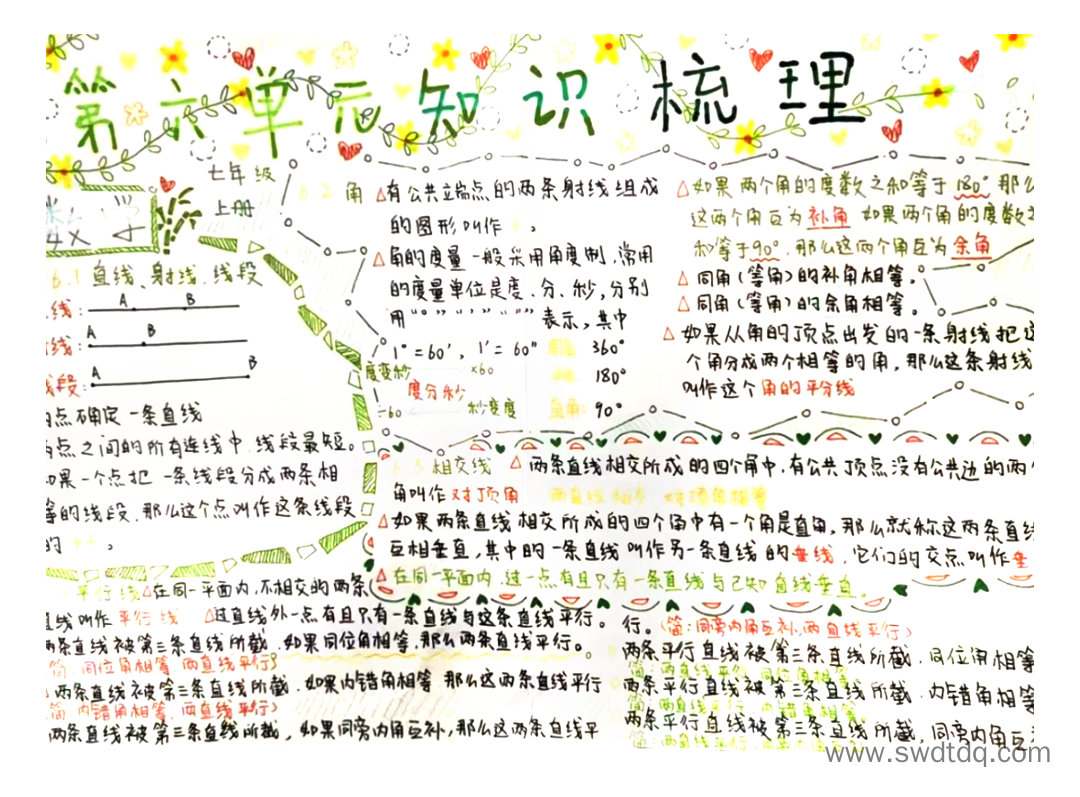 第六单元知识梳理
七年级
上册
数学
6.1 直线、射线、线段
线:
A
B
线:
A
B
线段:
A
B
点确定一条直线
点之间的所有连线中,线段最短。
如果一个点把一条线段分成两条相
等的线段,那么这个点叫作这条线段
的
6.2 角
△有公共端点的两条射线组成
的图形叫作
△角的度量一般采用角度制,常用
的度量单位是度、分、秒,分别
用“°”“′”“″”表示,其中
1°=60′,1′=60″
360°
180°
直角:90°
度变秒
×60
度分秒
÷60
秒变度
△如果两个角的度数之和等于180°那么
这两个角互为补角 如果两个角的度数之
和等于90°,那么这两个角互为余角
△同角(等角)的补角相等。
△同角(等角)的余角相等。
△如果从角的顶点出发的一条射线把这
个角分成两个相等的角,那么这条射线
叫作这个角的平分线
6.3 相交线
△两条直线相交所成的四个角中,有公共顶点没有公共边的两个
角叫作对顶角 两直线相交 对顶角相等
△如果两条直线相交所成的四个角中有一个角是直角,那么就称这两条直线
互相垂直,其中的一条直线叫作另一条直线的垂线,它们的交点叫作垂
△在同一平面内,过一点有且只有一条直线与已知直线垂直。
平行线 △在同一平面内,不相交的两条
直线叫作平行线 △过直线外一点有且只有一条直线与这条直线平行。
两条直线被第三条直线所截,如果同位角相等,那么两条直线平行。
简:同位角相等,两直线平行)
两条直线被第三条直线所截,如果内错角相等 那么这两条直线平行
简:内错角相等,两直线平行)
两条直线被第三条直线所截,如果同旁内角互补,那么这两条直线平
行。(简:同旁内角互补,两直线平行)
两条平行直线被第三条直线所截,同位角相等
简:两直线平行,同位角相等
两条平行直线被第三条直线所截,内错角相等
简:两直线平行,内错角相等
两条平行直线被第三条直线所截,同旁内角互
简:两直线平行,同旁内角互
www.swdtdq.com